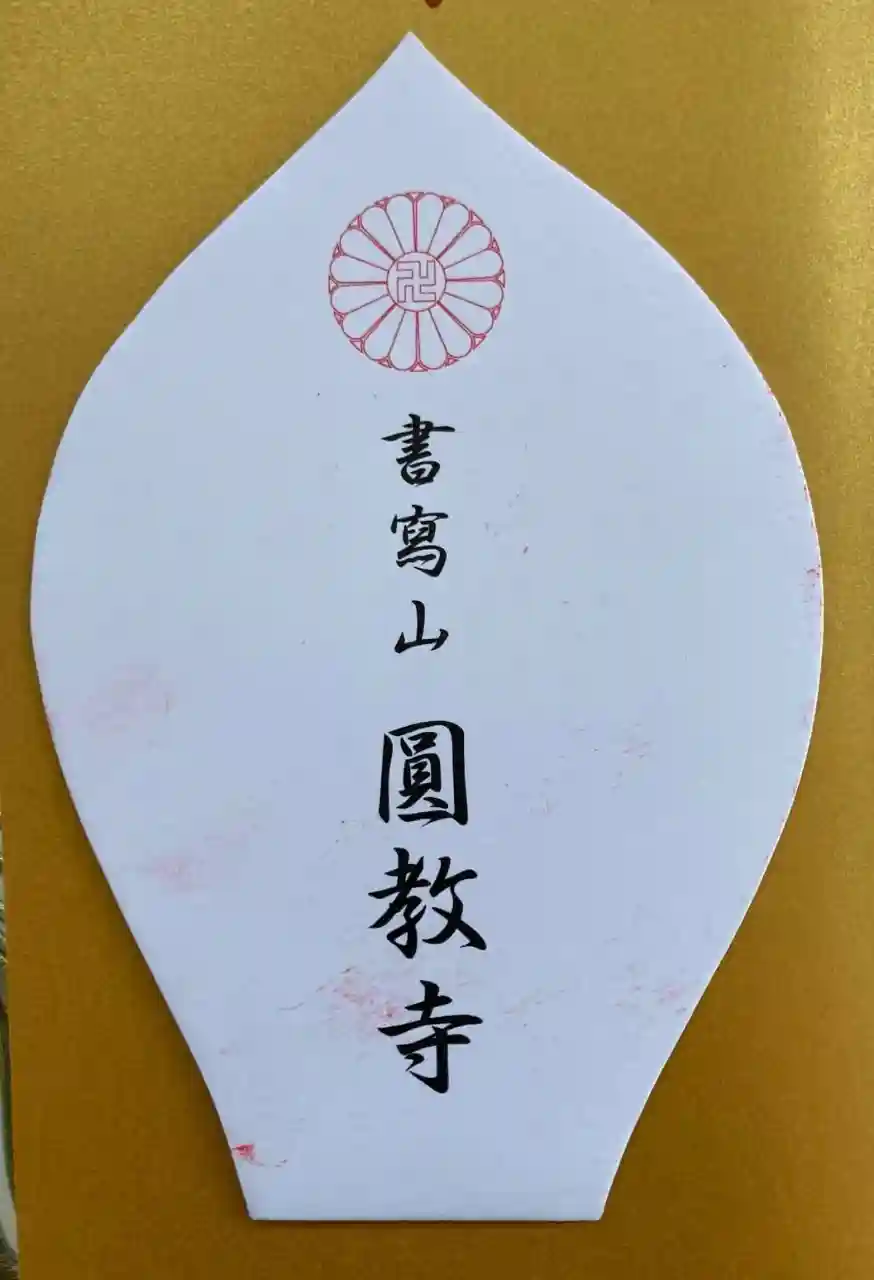 卍
書寫山 圓教寺